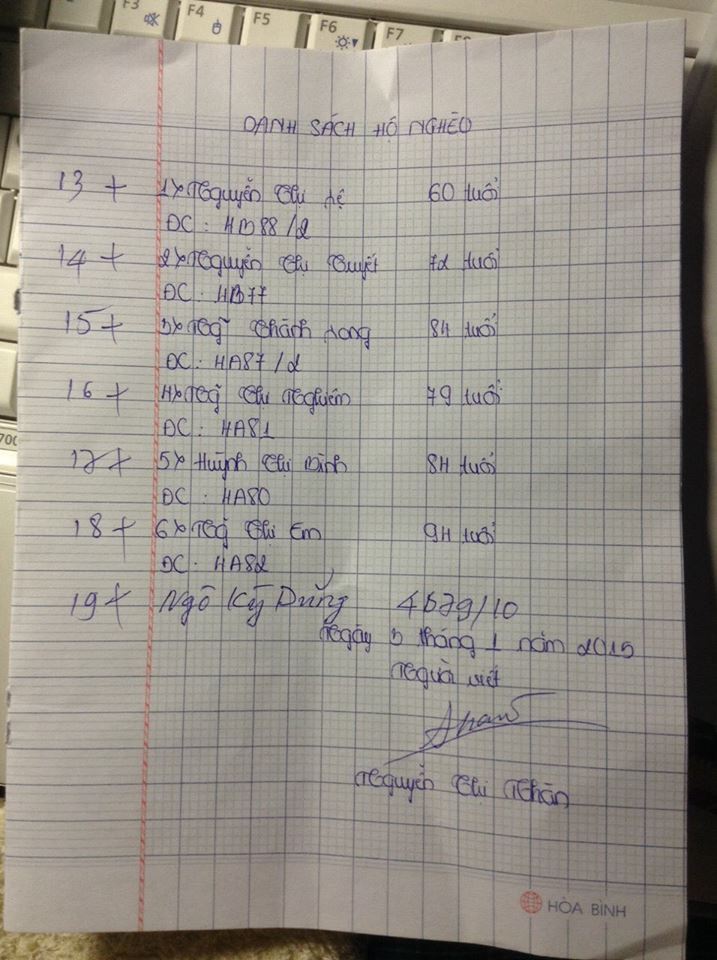 F3 F4 F5 F6 F7
DANH SÁCH HỘ NGHÈO
13 + 1) Nguyễn Thị Lệ 60 tuổi
ĐC: HB88/2
14 + 2) Nguyễn Thị Tuyết 72 tuổi
ĐC: HB77
15 + 3) Ngô Thành Long 84 tuổi
ĐC: HA87/2
16 + 4) Ngô Thị Nghiêm 79 tuổi
ĐC: HA81
17 + 5) Huỳnh Thị Bình 84 tuổi
ĐC: HA80
18 + 6) Ngô Thị Em 94 tuổi
ĐC: HA82
19 + Ngô Kỳ Dũng 4B79/10
Ngày 3 tháng 1 năm 2015
Người viết
Nguyễn Thị Nhân
HÒA BÌNH